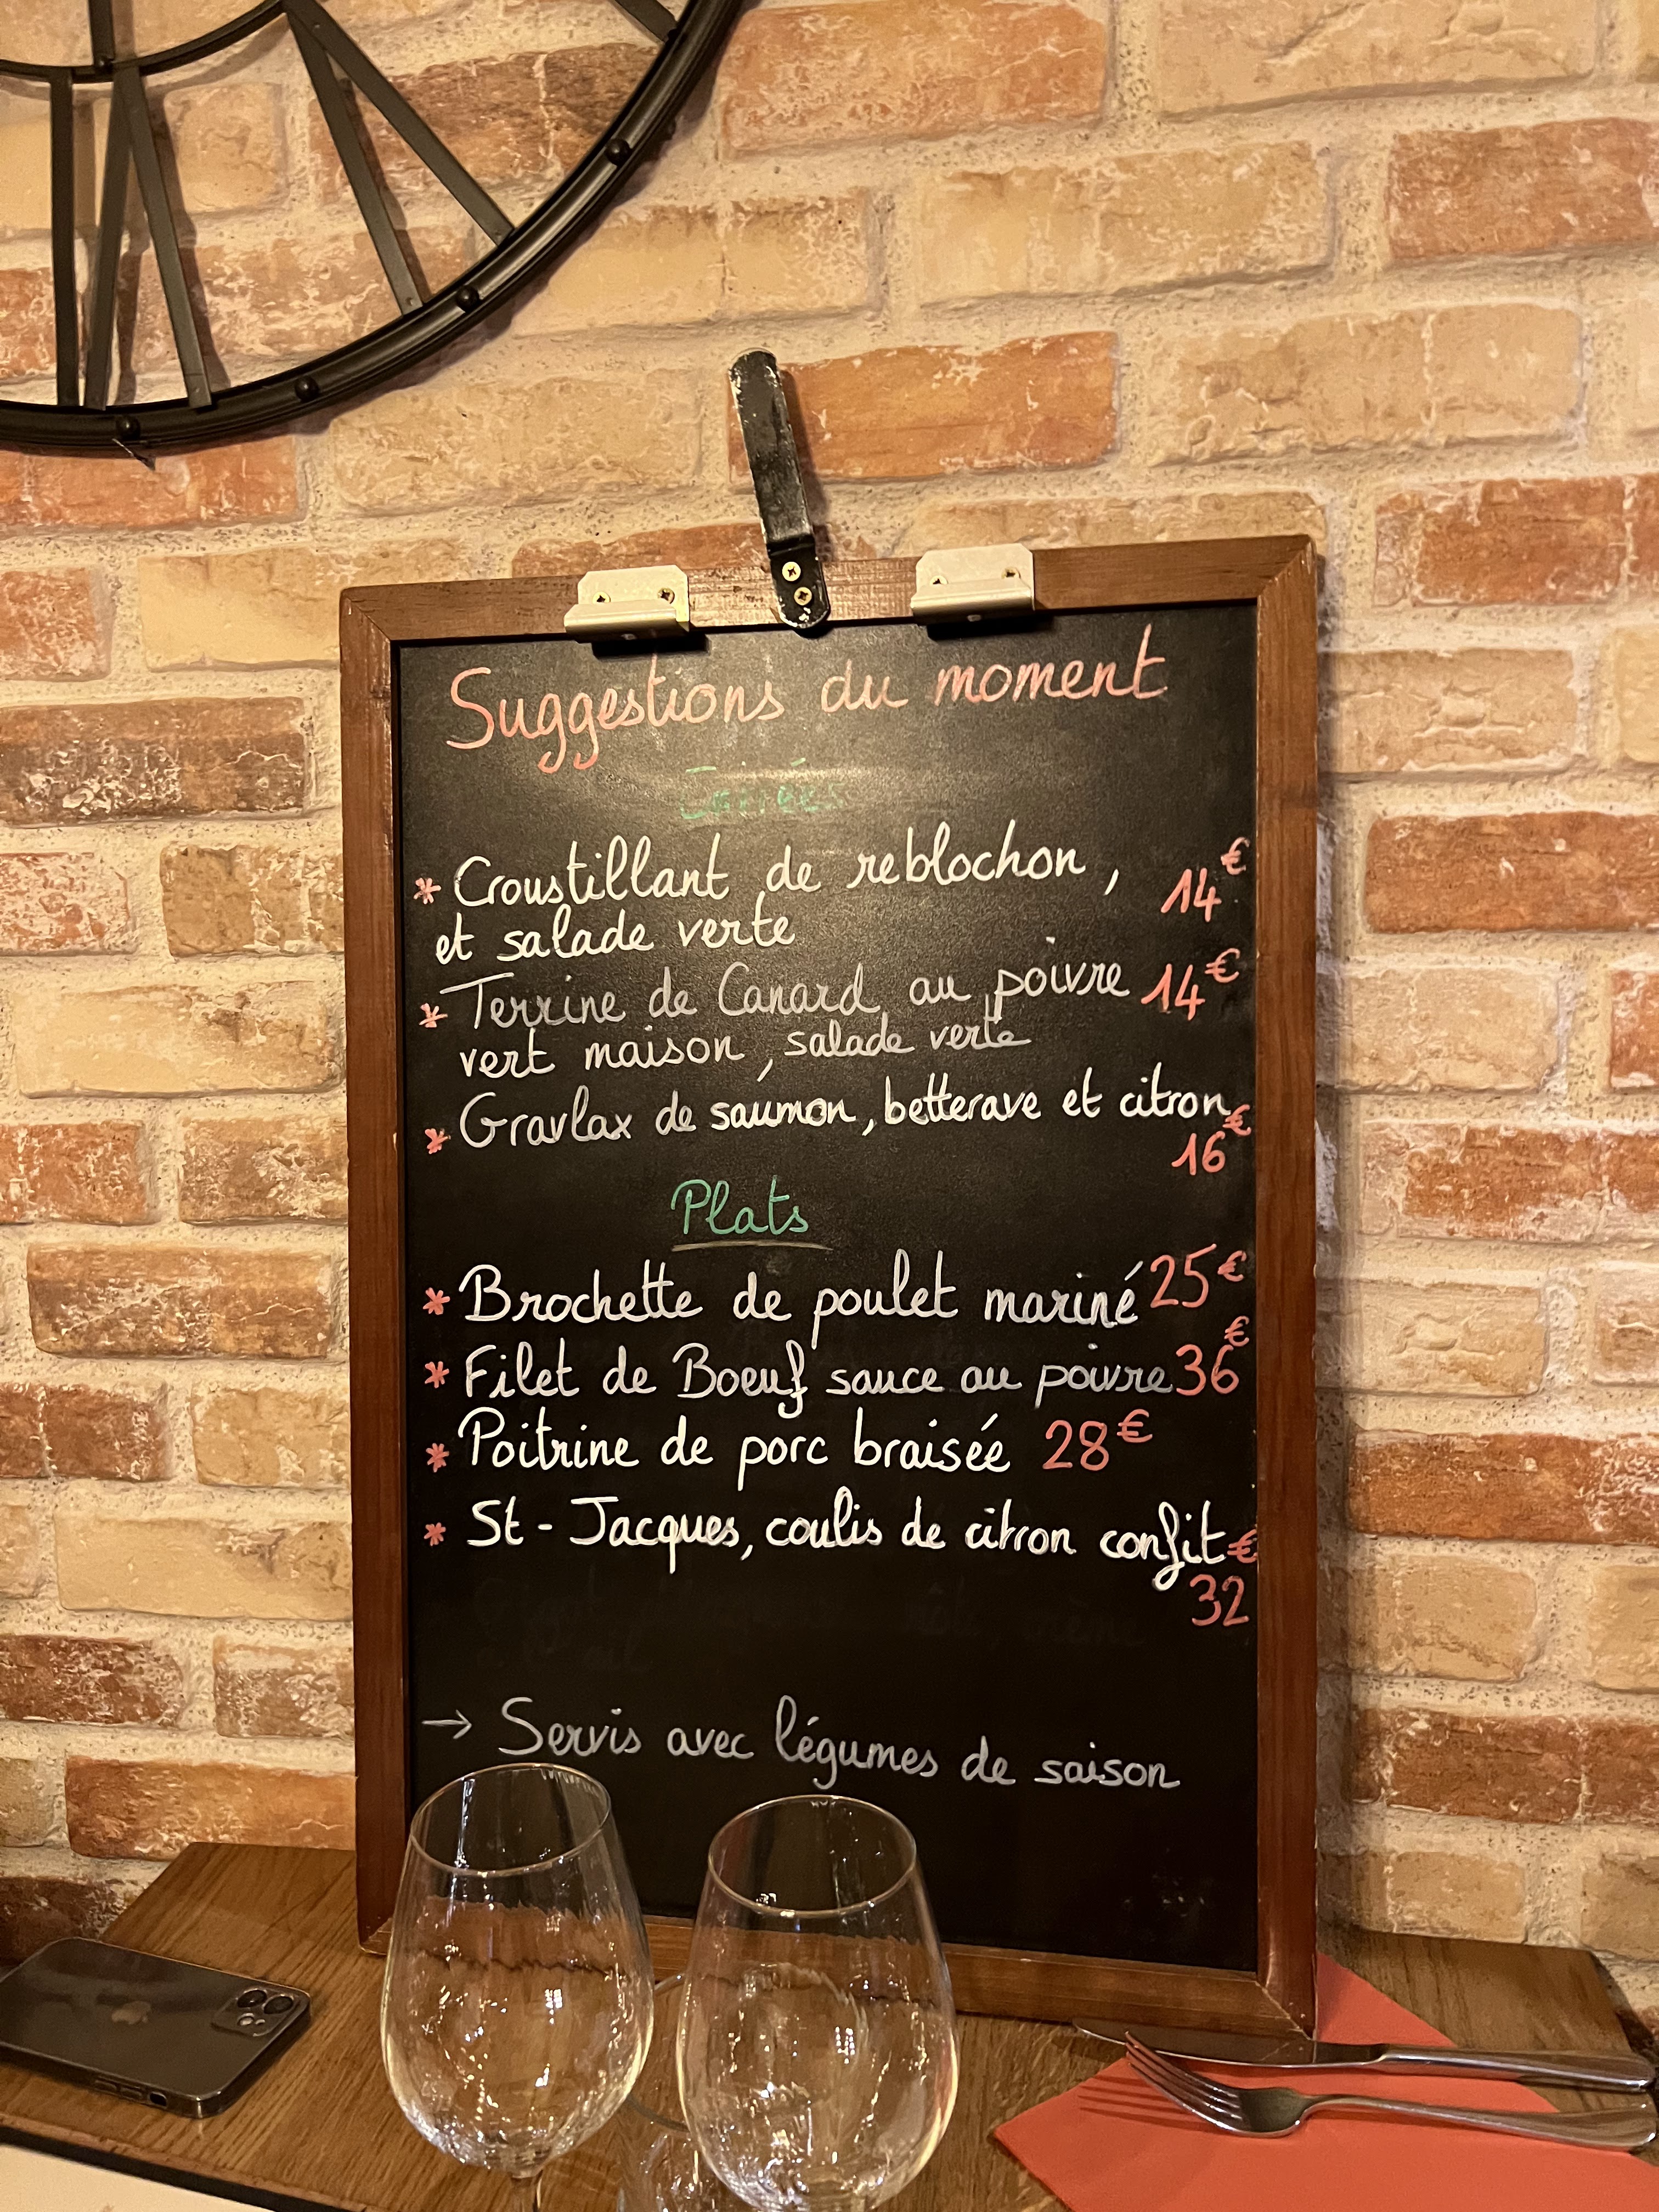 Suggestions du moment
Entrées
* Croustillant de reblochon, 14€
et salade verte
* Terrine de Canard au poivre 14€
vert maison, salade verte
* Gravlax de saumon, betterave et citron
16€
Plats
* Brochette de poulet mariné 25€
* Filet de Boeuf sauce au poivre 36€
* Poitrine de porc braisée 28€
* St-Jacques, coulis de citron confit €
32
→ Servis avec légumes de saison